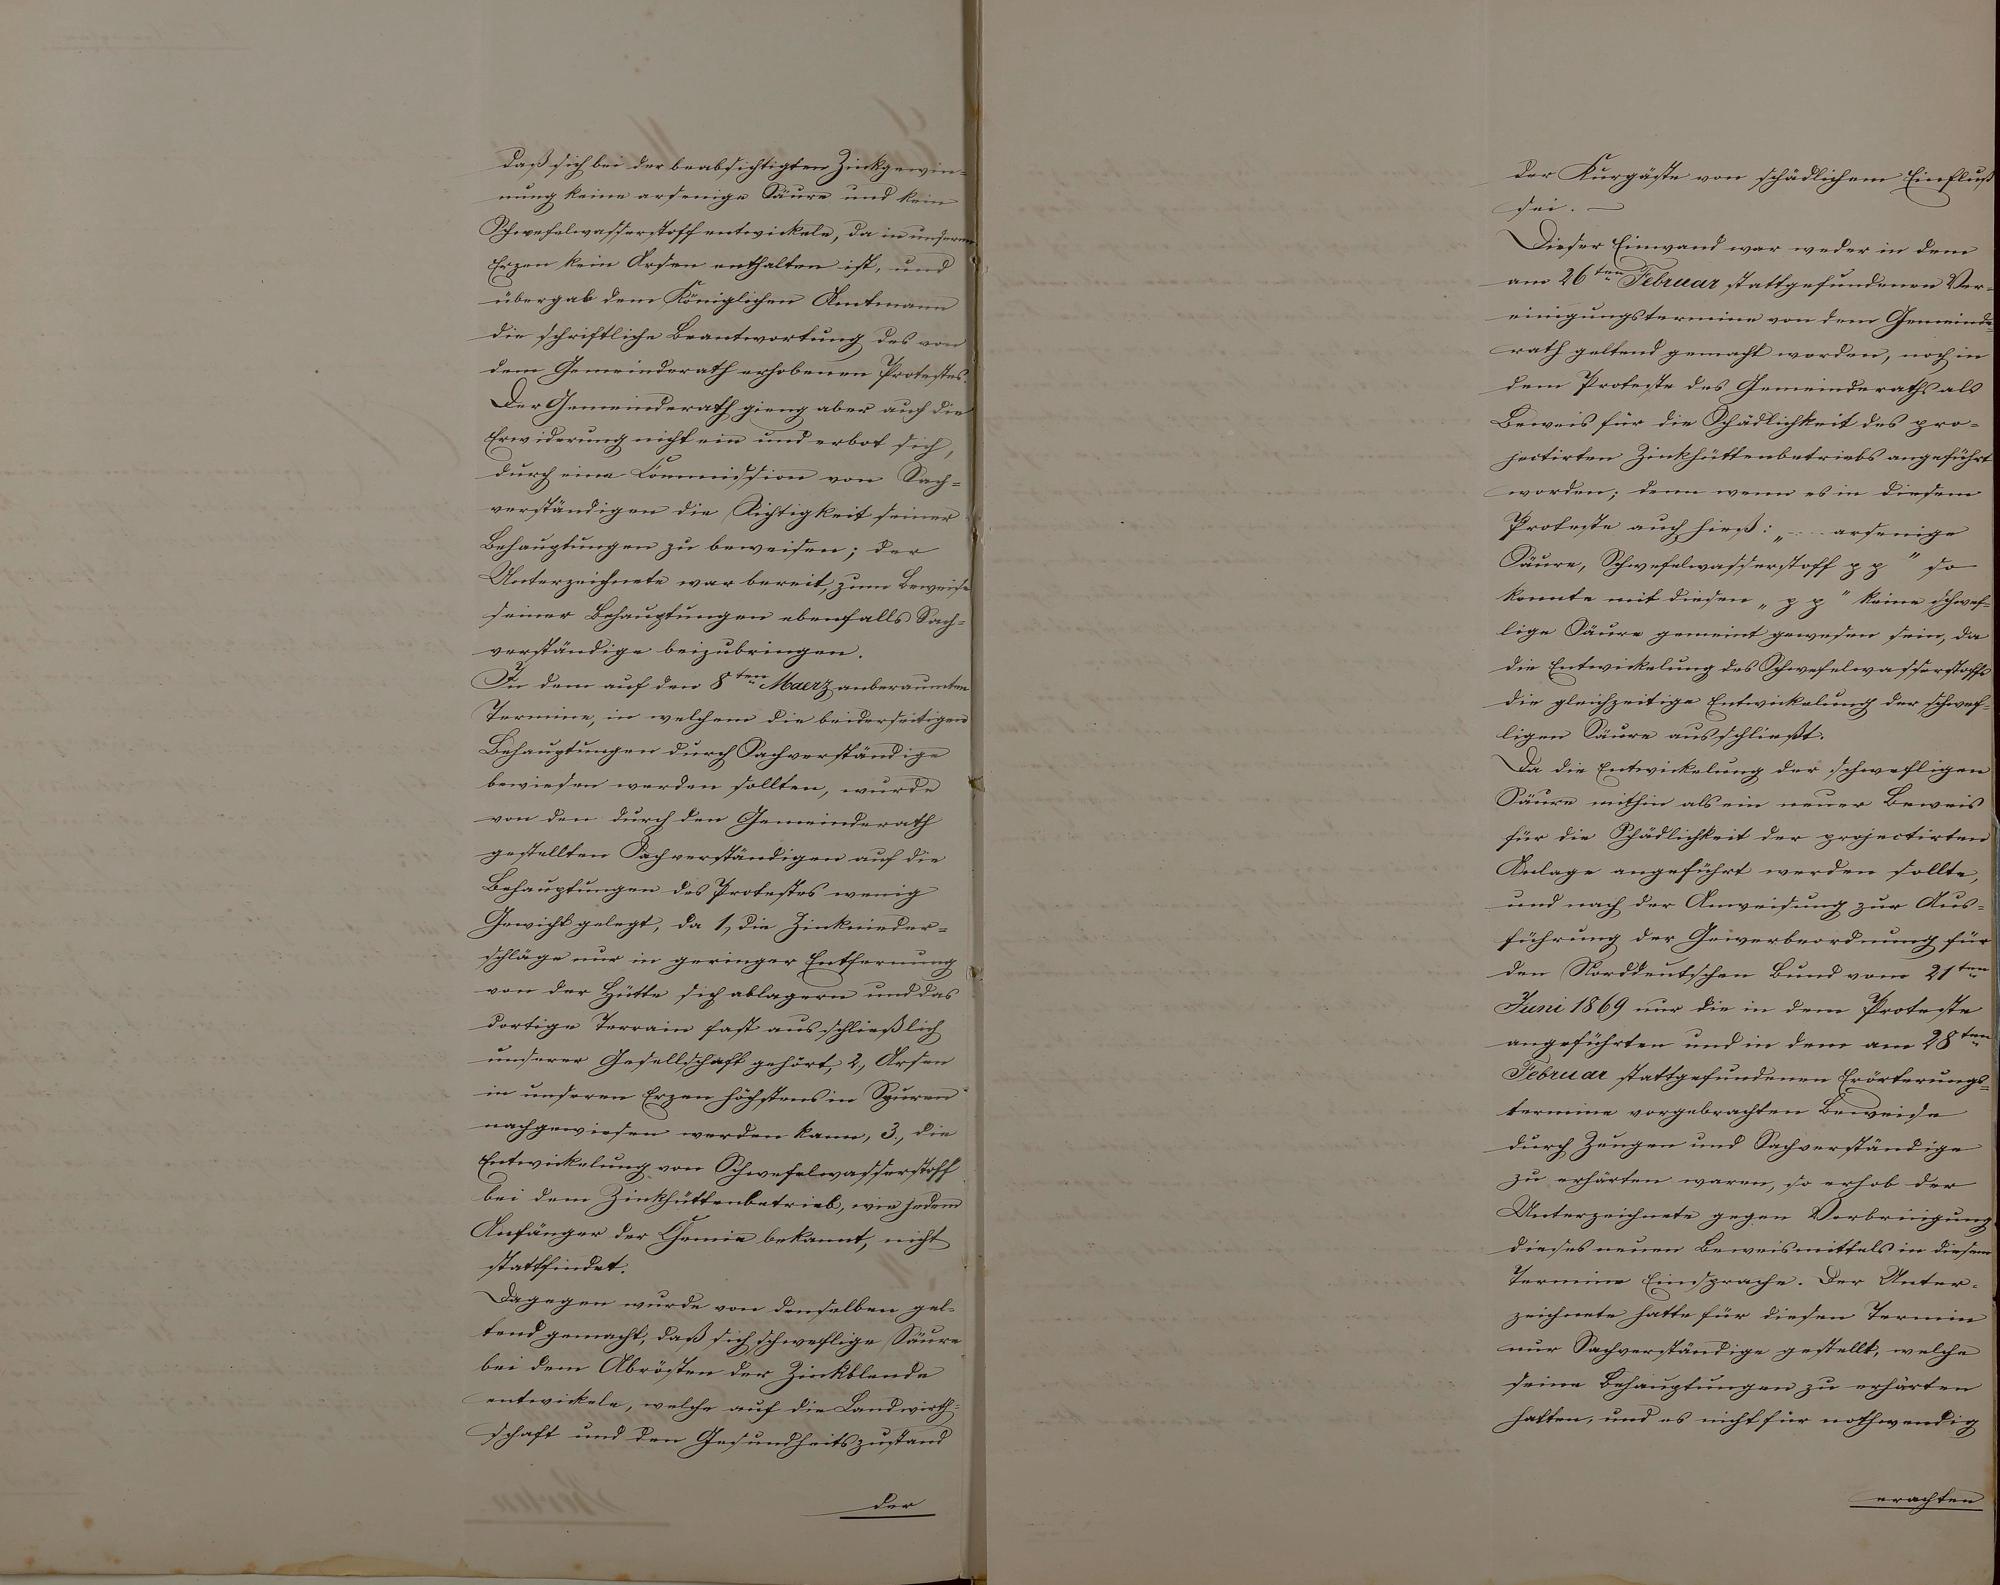 daß sich bei der beabsichtigten Zinkgewin-
nung keine arsenige Säure und kein
Schwefelwasserstoff entwickele, da in unseren
Erzen kein Arsen enthalten ist, und
übergab dem Königlichen Amtmann
die schriftliche Beantwortung des von
dem Gemeinderath erhobenen Protestes.
Der Gemeinderath gieng aber auf die
Erwiderung nicht ein und erbot sich,
durch eine Commission von Sach-
verständigen die Richtigkeit seiner
Behauptungen zu beweisen; der
Unterzeichnete war bereit, zum Beweise
seiner Behauptungen ebenfalls Sach-
verständige beizubringen.
In dem auf den 8ten Maerz anberaumten
Termine, in welchem die beiderseitigen
Behauptungen durch Sachverständige
bewiesen werden sollten, wurde
von den durch den Gemeinderath
gestellten Sachverständigen auf die
Behauptungen des Protestes wenig
Gewicht gelegt, da 1, die Zinknieder-
schläge nur in geringer Entfernung
von der Hütte sich ablagern und das
dortige Terrain fast ausschließlich
unserer Gesellschaft gehört, 2., Arsen
in unseren Erzen höchstens in Spuren
nachgewiesen werden kann, 3., die
Entwickelung von Schwefelwasserstoff
bei dem Zinkhüttenbetrieb, wie jedem
Anfänger der Chemie bekannt, nicht
stattfindet.
Dagegen wurde von denselben gel-
tend gemacht, daß sich schweflige Säure
bei dem Abrösten der Zinkblende
entwickele, welche auf die Landwirth-
schaft und den Gesundheitszustand
der
der Kurgäste von schädlichem Einfluß
sei. —
Dieser Einwand war weder in dem
am 26ten Februar stattgefundenen Ver-
einigungstermine von dem Gemeinde-
rath geltend gemacht worden, noch in
dem Proteste des Gemeinderaths als
Beweis für die Schädlichkeit des pro-
jectirten Zinkhüttenbetriebs angeführt
worden; denn wenn es in diesem
Proteste auch hieß: „ .... arsenige
Säure, Schwefelwasserstoff pp " so
konnte mit diesen „ pp " keine schwef-
lige Säure gemeint gewesen sein, da
die Entwickelung des Schwefelwasserstoffs
die gleichzeitige Entwickelung der schwef-
ligen Säure ausschließt.
Da die Entwickelung der schwefligen
Säure mithin als ein neuer Beweis
für die Schädlichkeit der projectirten
Anlage angeführt werden sollte,
und nach der Anweisung zur Aus-
führung der Gewerbeordnung für
den Norddeutschen Bund vom 21ten
Juni 1869 nur die in dem Proteste
angeführten und in dem am 28ten
Februar stattgefundenen Erörterungs-
termine vorgebrachten Beweise
durch Zeugen und Sachverständige
zu erhärten waren, so erhob der
Unterzeichnete gegen Vorbringung
dieses neuen Beweismittels in diesem
Termine Einsprache. Der Unter-
zeichnete hatte für diesen Termin
nur Sachverständige gestellt, welche
seine Behauptungen zu erhärten
hatten, und es nicht für nothwendig
erachten